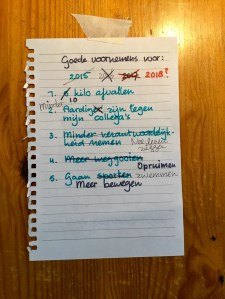 Goede voornemens voor:
2015 2016 2017 2018!
1. 8 kilo afvallen
Minder 10
2. Aardig zijn tegen
mijn collega's
3. Minder verantwoordelijk-
heid nemen Nee leren
zeggen
4. Meer weggooien
Opruimen
5. Gaan sporten zwemmen
Meer bewegen